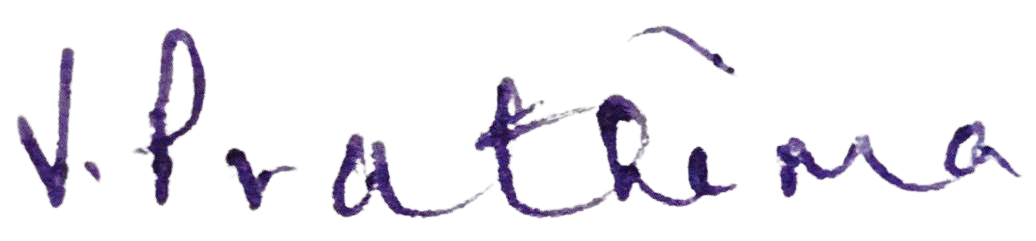 V. Prathima